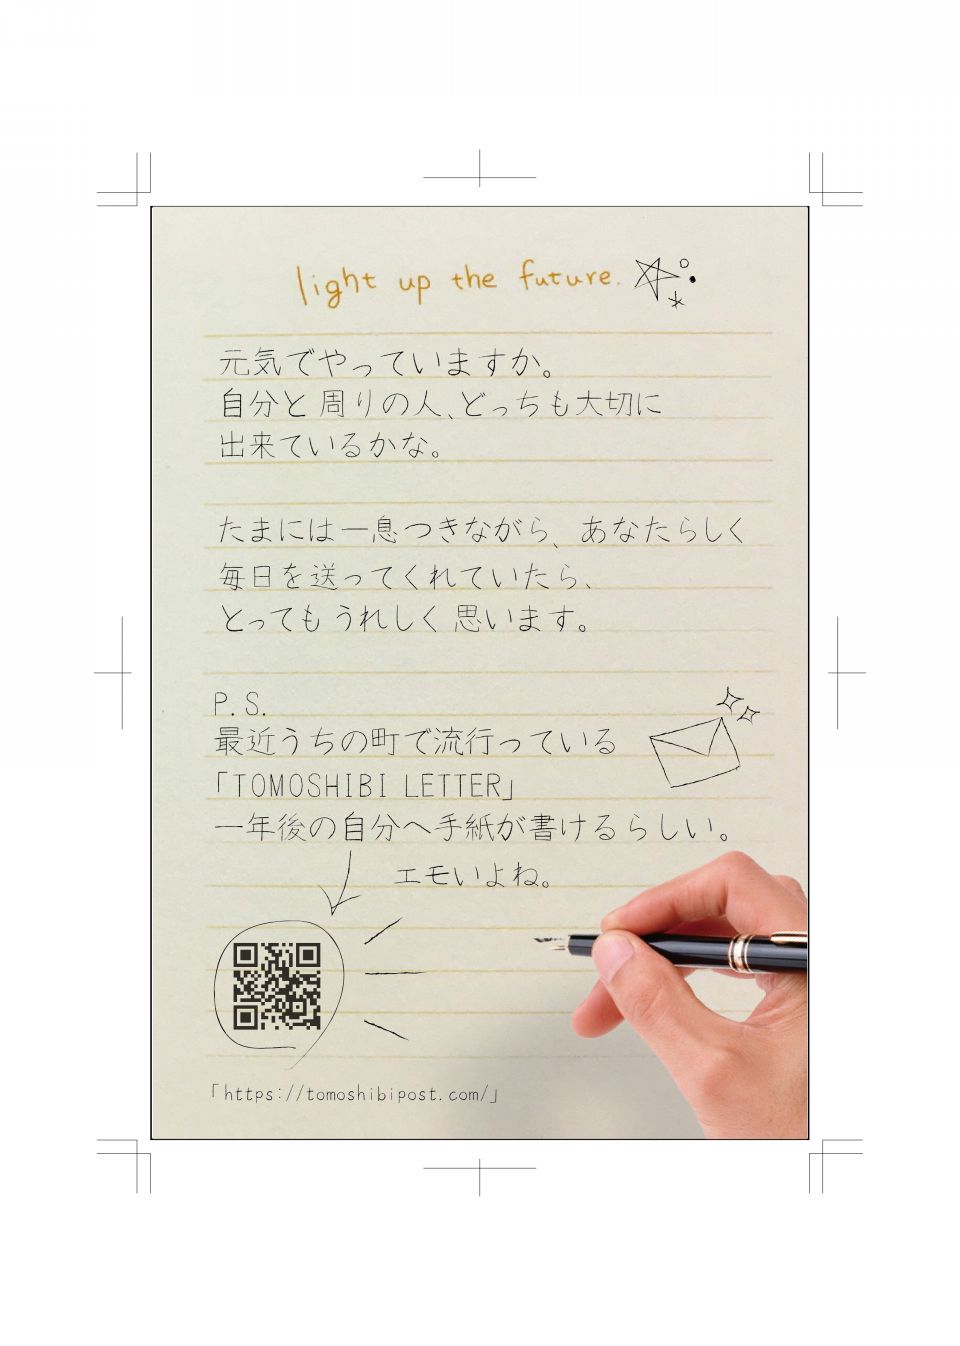 light up the future.
元気でやっていますか。
自分と周りの人、どっちも大切に
出来ているかな。
たまには一息つきながら、あなたらしく
毎日を送ってくれていたら、
とってもうれしく思います。
P.S.
最近うちの町で流行っている
「TOMOSHIBI LETTER」
一年後の自分へ手紙が書けるらしい。
エモいよね。
「https://tomoshibipost.com/」